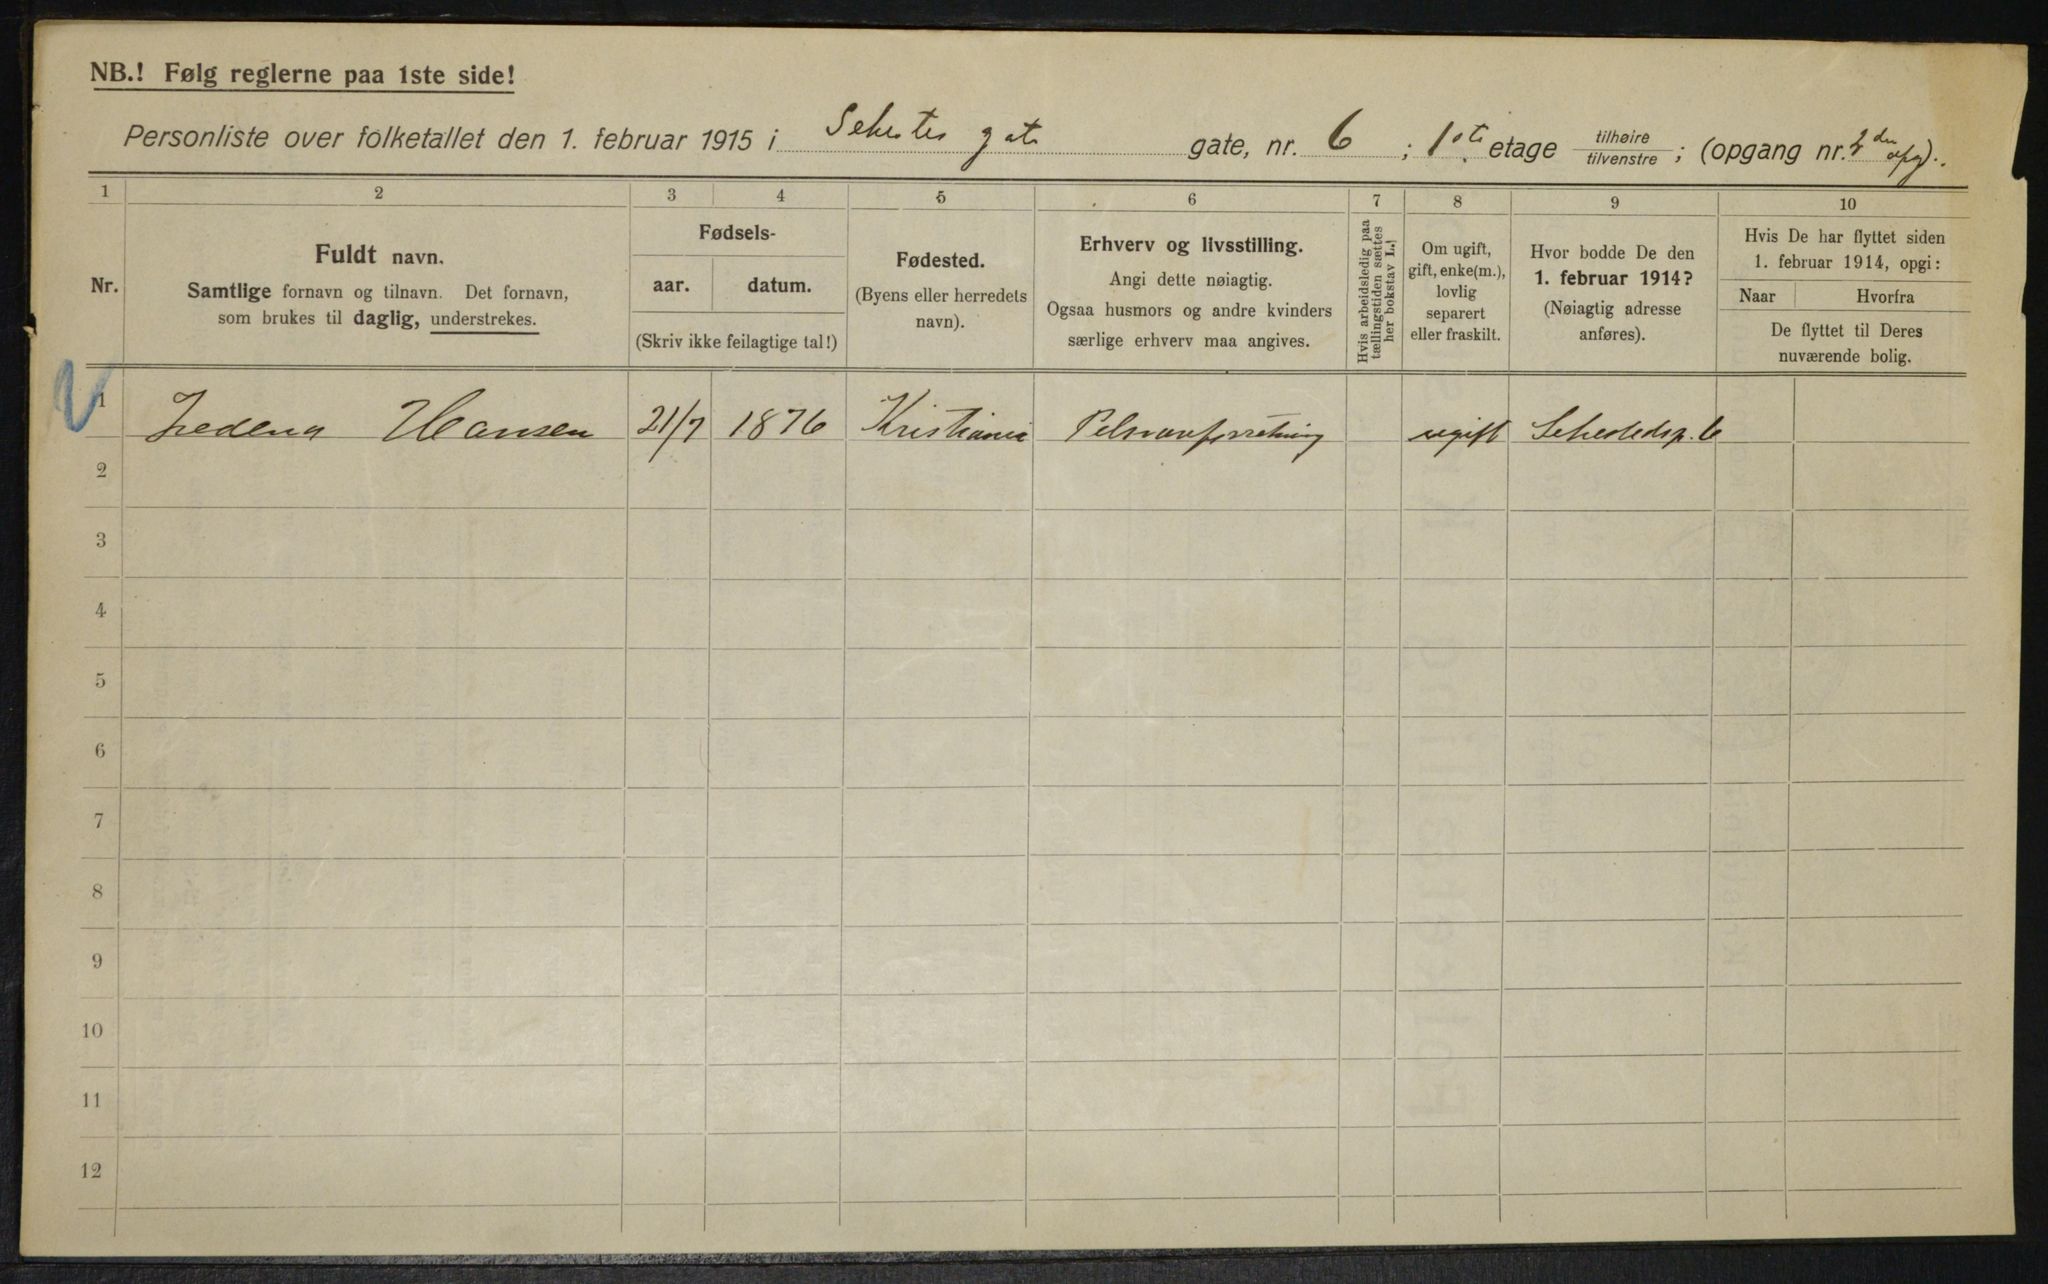 NB.! Følg reglerne paa 1ste side!
Personliste over folketallet den 1. februar 1915 i Sehestes gate gate, nr. 6 ; 1ste etage tilhøire tilvenstre ; (opgang nr. 2den opg).
1 2 3 4 5 6 7 8 9 10
Nr.
Fuldt navn.
Samtlige fornavn og tilnavn. Det fornavn,
som brukes til daglig, understrekes.
Fødsels-
aar. datum.
(Skriv ikke feilagtige tal!)
Fødested.
(Byens eller herredets
navn).
Erhverv og livsstilling.
Angi dette nøiagtig.
Ogsaa husmors og andre kvinders
særlige erhverv maa angives.
Hvis arbeidsledig paa
tællingstiden sættes
her bokstav L.)
Om ugift,
gift, enke(m.),
lovlig
separert
eller fraskilt.
Hvor bodde De den
1. februar 1914?
(Nøiagtig adresse
anføres).
Hvis De har flyttet siden
1. februar 1914, opgi:
Naar Hvorfra
De flyttet til Deres
nuværende bolig.
1 Hansen 21/7 1876 Kristiania Pelsvareforretning ugift Sehestedsg. 6
2
3
4
5
6
7
8
9
10
11
12